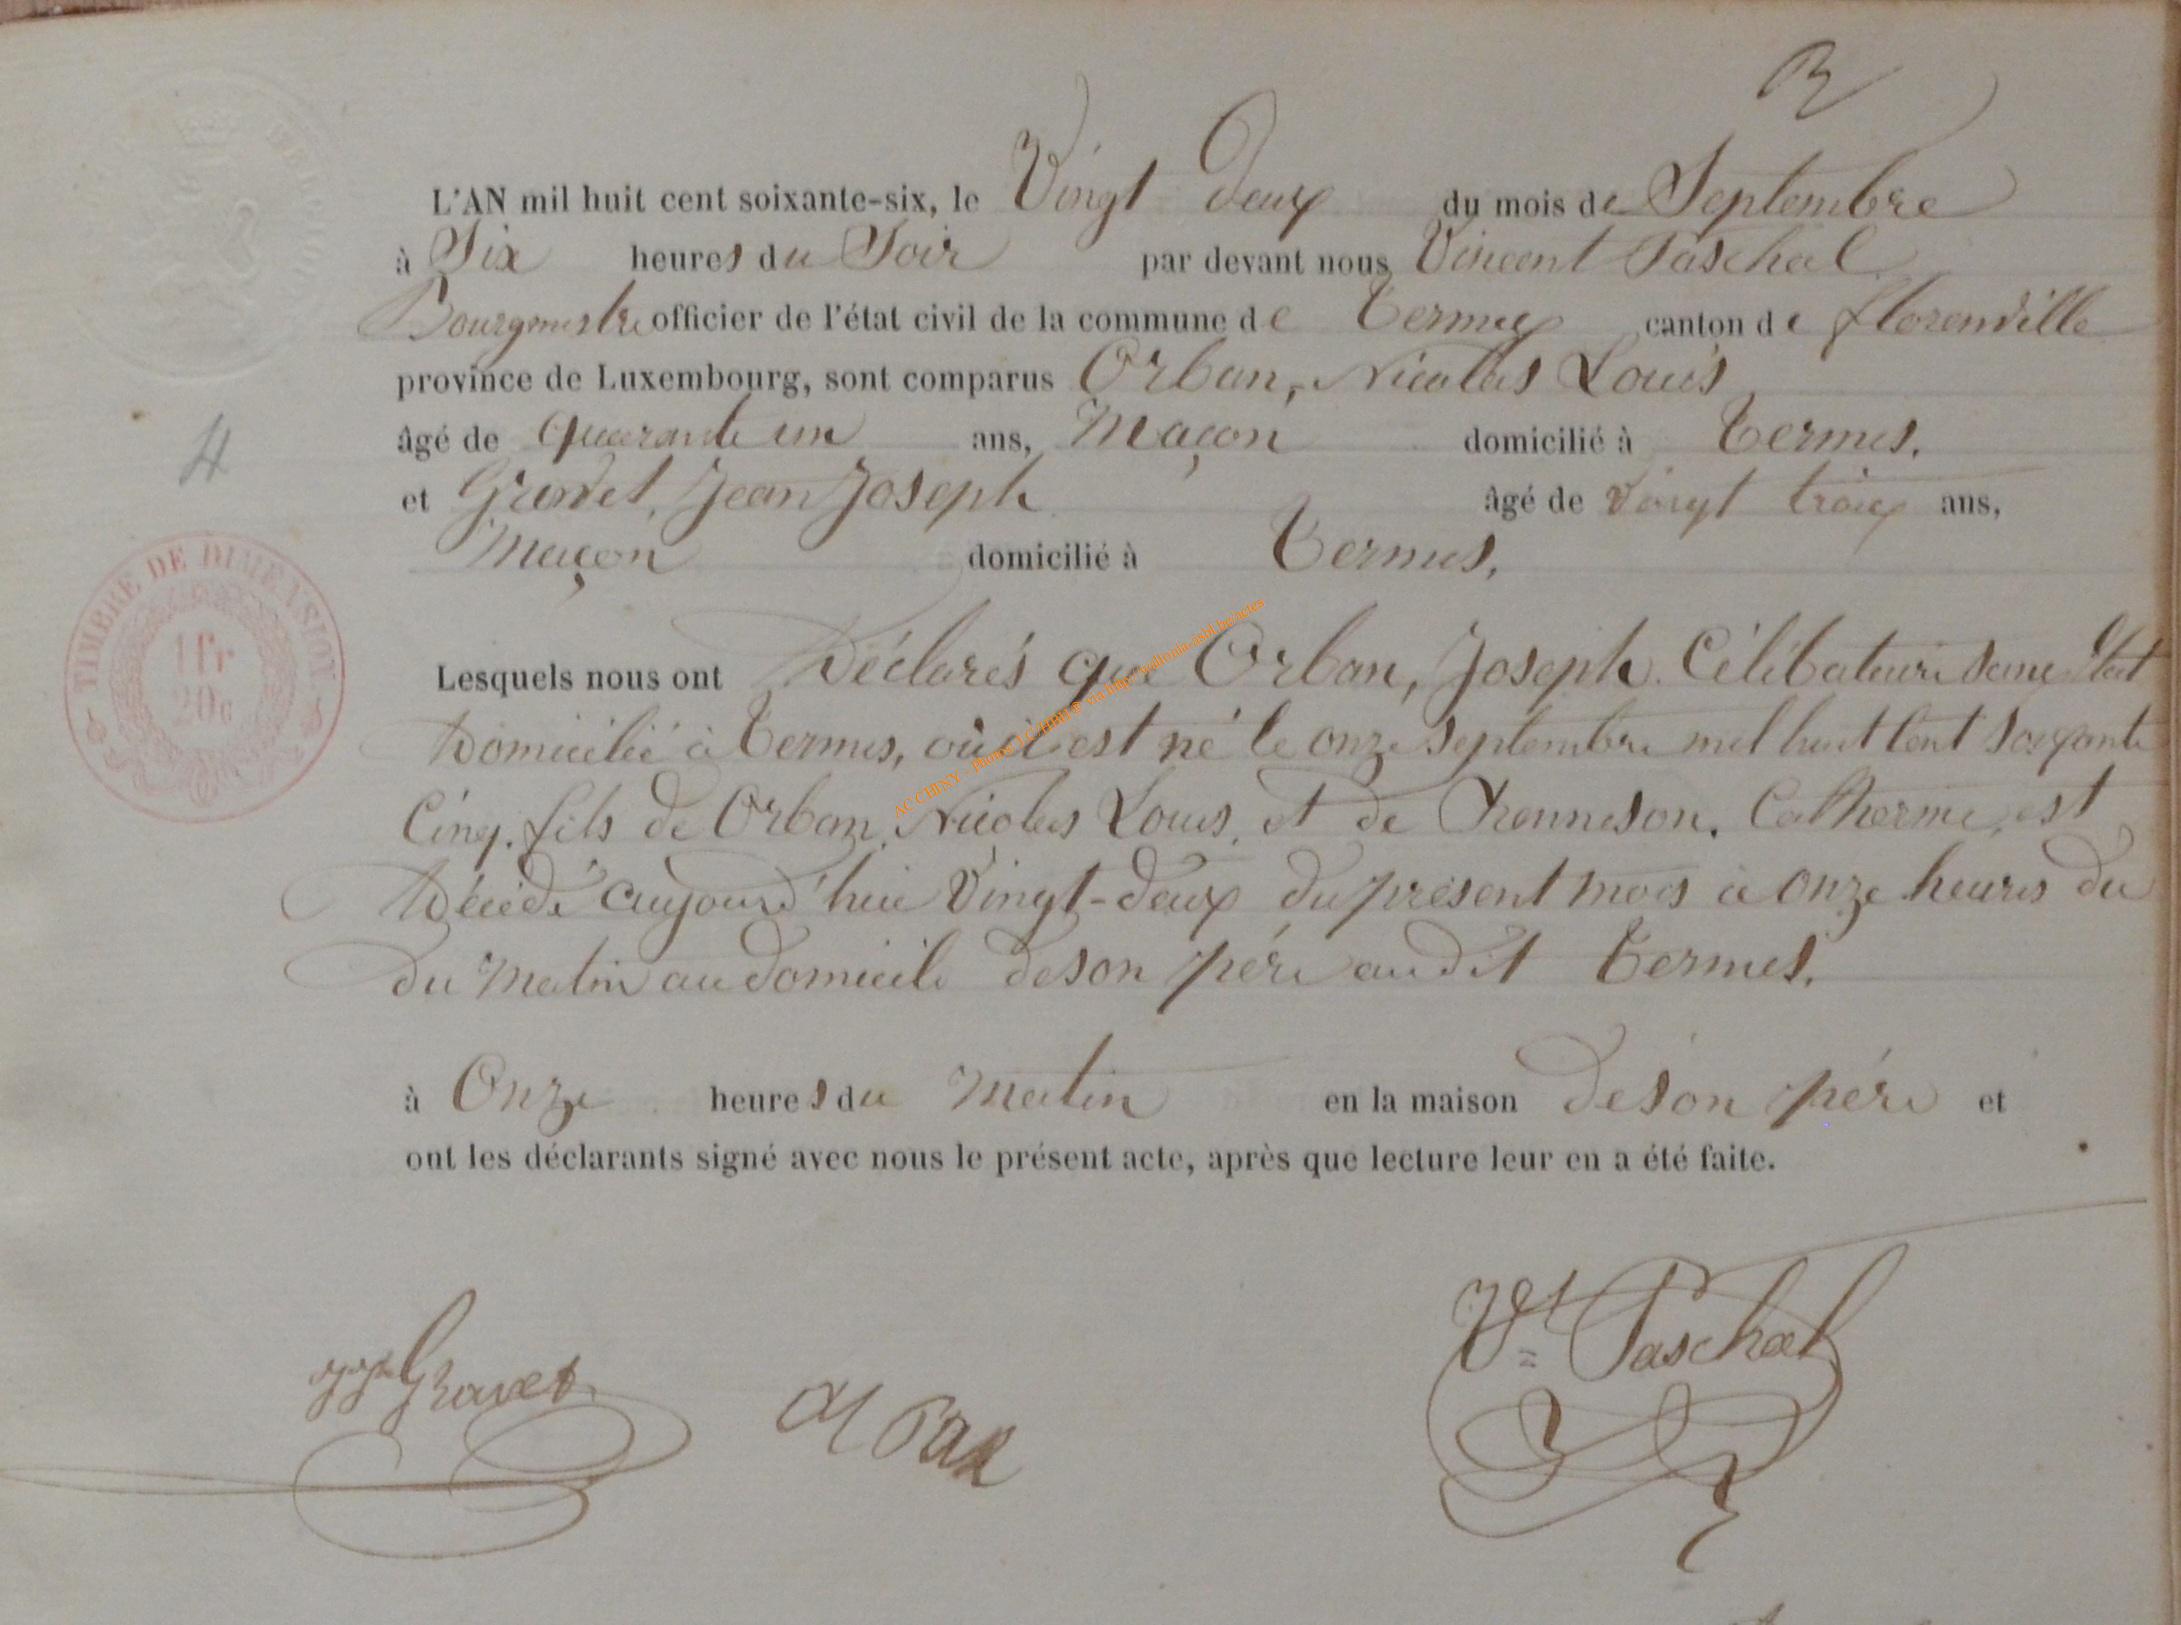 L'AN mil huit cent soixante-six, le Vingt Deux du mois de Septembre
à Six heures du Soir par devant nous Vincent Paschal
Bourgmestre officier de l'état civil de la commune de Termes canton de florenville
province de Luxembourg, sont comparus Orban, Nicolas Louis
âgé de quarante un ans, Maçon domicilié à Termes.
et Gravet, Jean Joseph âgé de Vingt trois ans,
Maçon domicilié à Termes,
4
TIMBRE DE DIMENSION
1 fr
20c
Lesquels nous ont Déclarés que Orban, Joseph Célibataire sans Etat
Domicilié à Termes, où il est né le onze septembre mil huit Cent soixante
Cinq. fils de Orban, Nicolas Louis, et de Thenneson, Catherine, est
Décédé aujourd'hui Vingt-deux du présent mois à onze heures du
du Matin au domicile de son père audit Termes.
à Onze heures du Matin en la maison De son père et
ont les déclarants signé avec nous le présent acte, après que lecture leur en a été faite.
Gravet
Vt Paschal